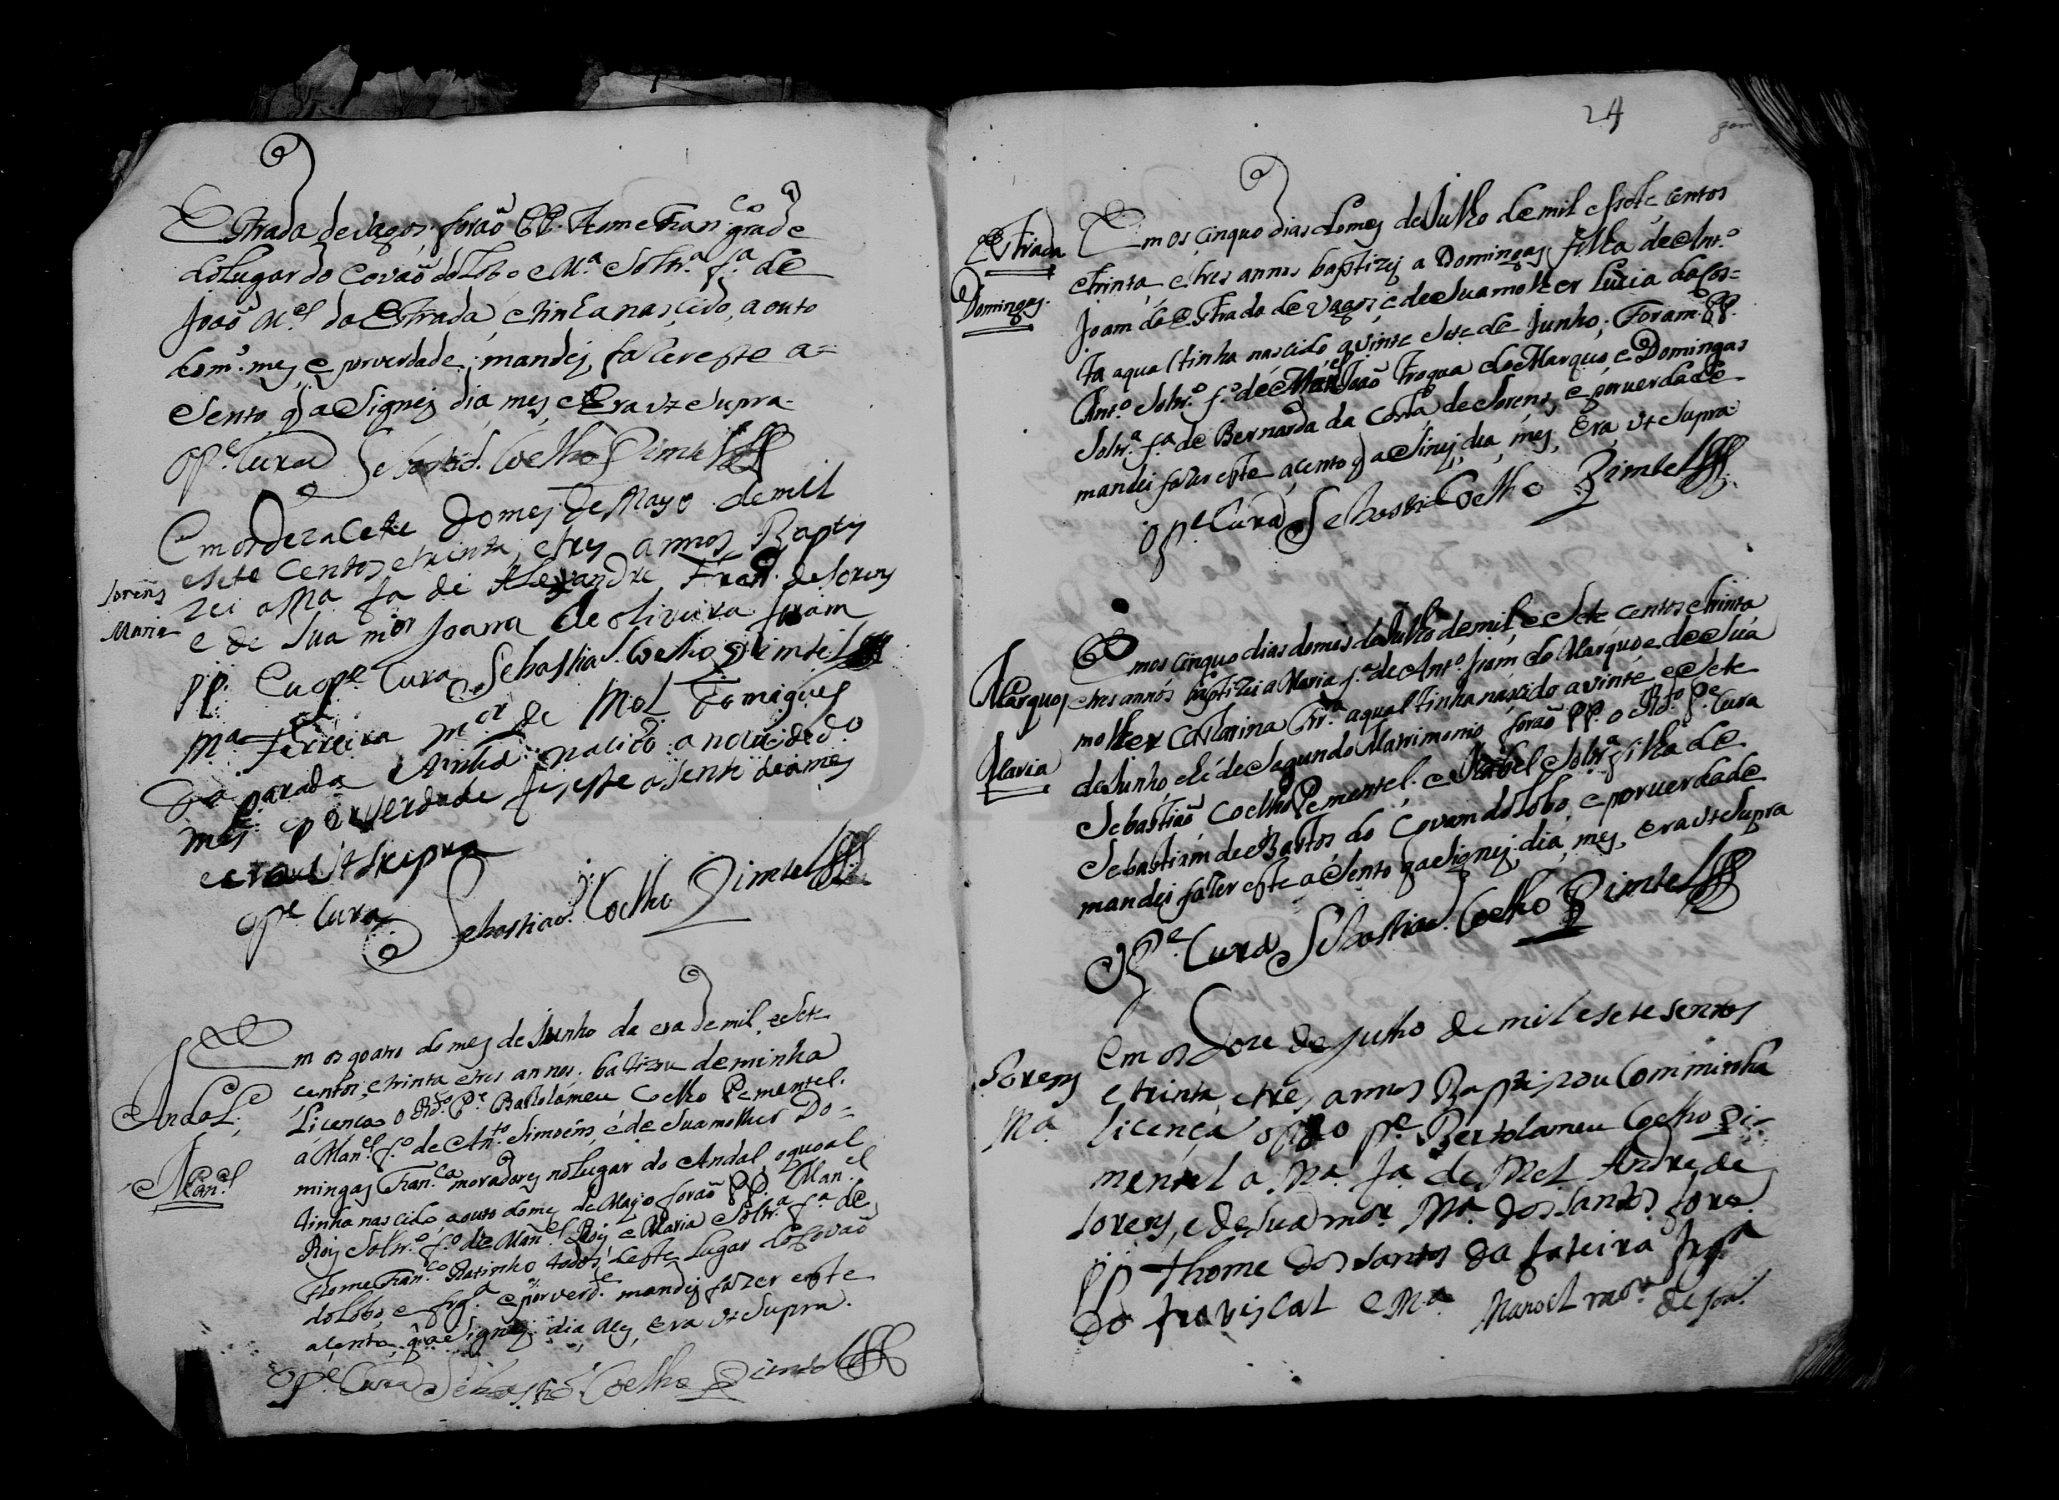 Estrada de Vagos forão PP. Thome Fran.co grade
do lugar do Covão do Lobo e M.a Soltr.a f.a de
João M.el da Estrada e tinha nascido, a outo
do m.o mes e por verdade, mandei fazer este a=
sento q asignei dia mes e Era ut supra.
O P.e Cura Sebastião Coelho Pimtel
Em os dezacete do mes de Mayo de mil
e sete centos e trinta, e tres annos Bapti
Sorens
zei a Ma fa de Alexandre Fran. de Sorens
Maria
e de sua mor Joana de oliveira foram
pp. Eu o P.e Cura Sebastião Coelho Pimtel
M.a Ferreira m.er de Mel Domigues
da parada e tinha nacido a nove do d.o
mes e por verdade fis este asento dia mes
e era ut supra
O P.e Cura Sebastiao Coelho Pimtel
Em os quatro do mes de Junho da era de mil, e sete
centos, e trinta e tres annos. batizou de minha
Andal
Licença o Rd.o P.e Bartolameu Coelho Pementel.
a Man.el f.o de An.to Simoens, e de sua molher Do=
Man.el
mingas Fran.ca moradores no Lugar do Andal, o qual
tinha nascido, a outo do mes de Mayo forão PP. Man.el
Roiz Soltr.o f.o de Man.el Roiz e Maria Soltr.a f.a de
Thome Fran.co Ratinho todos deste Lugar do Covão
do Lobo, e frg.a e por verd.e mandei fazer este
asento q asignei dia, mes, era ut supra.
O P.e Cura Sebastião Coelho Pimtel
24
Estrada
Em os cinquo dias do mes de Julho de mil e sete centos
e trinta, e tres annos baptizei a Domingas filha de Ant.o
Domingas.
Joam da Estrada de Vagos, e de sua molher Lucia da Cos=
ta a qual tinha nascido a vinte e sete de Junho; Foram PP.
Ant.o Soltr.o f.o de Man.el João Troqua do Marquo e Domingas
Soltr.a f.a de Bernarda da Costa de Sorens, e por verdade
mandei fazer este acento q asinei, dia, mes, Era ut supra
O P.e Cura Sebastião Coelho Pimtel
Em os cinquo dias do mes de Julho de mil, e sete centos e trinta
Marquo
e tres annos baptizei a Maria f.a de Ant.o Fram do Marquo e de sua
molher Catarina a qual tinha nascido a vinte, e sete
Maria
de Junho, e he de segundo Matrimonio forão PP. o Rd.o P.e Cura
Sebastião Coelho Pementel, e Izabel Soltr.a filha de
Sebastiam de Bastos do Covam do Lobo, e por verdade
mandei fazer este asento q asignei, dia, mes, era ut supra
O P.e Cura Sebastiao Coelho Pimtel
Em os Doze de Julho de mil e sete sentos
Sorens
e trinta, e tres annos Baptizou com minha
Ma.
licença o P.e Bertolameu Coelho Pi-
mentel a Ma. fa de Mel Andre de
Sorens, e de sua mor. Ma. dos santos fora.
pp Thome dos santos da fateira frg.a
do Troviscal e Ma Manoel mor de Sor.